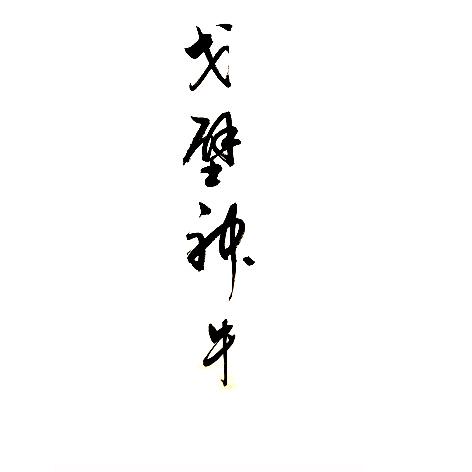 戈壁神牛